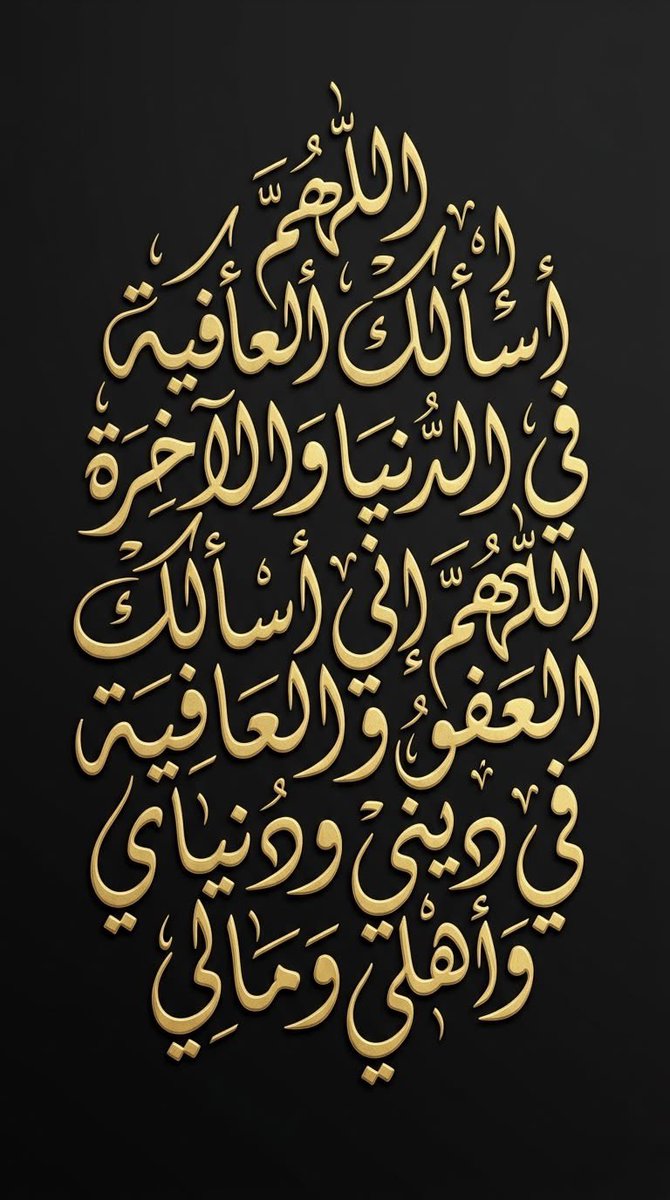 اللَّهُمَّ
أسألك ألعأفية
في الدُّنيَا وَالآخِرَة
اللَّهُمَّ إني أسألك
العَفوُ والعَافِيَة
في ديني ودُنياي
وَأهْلي وَمَالِي